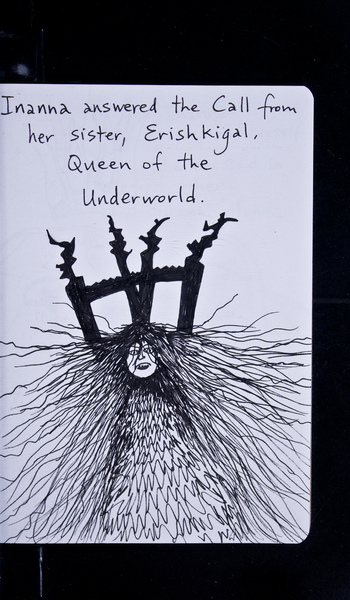 Inanna answered the Call from
her sister, Erishkigal,
Queen of the
Underworld.